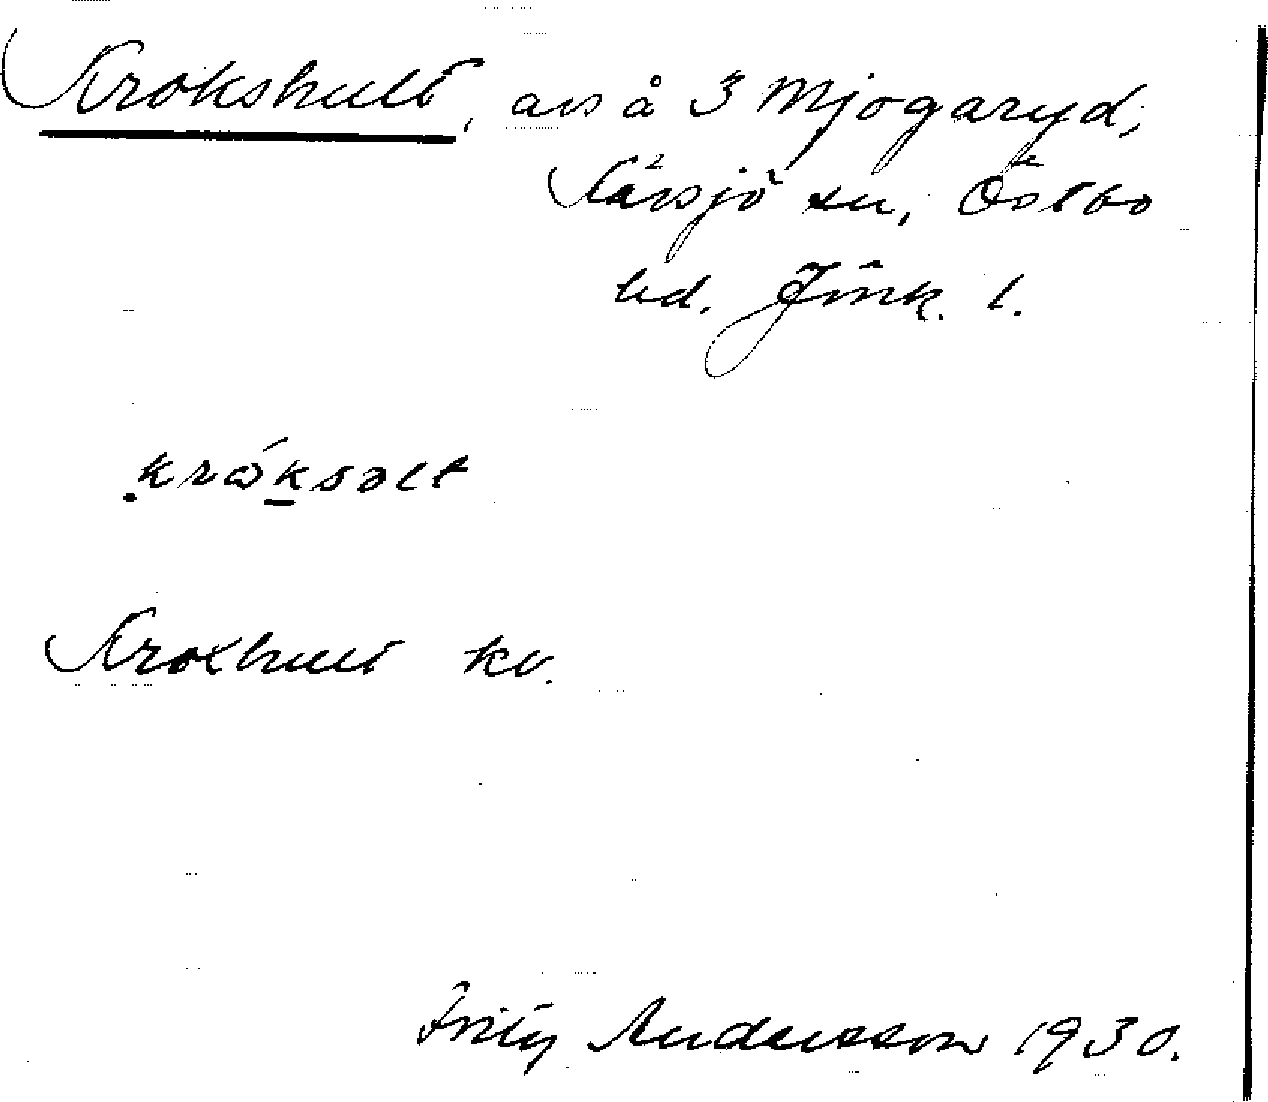 Krokshult, avs å 3 Mjogaryd,
Kävsjö sn, Östbo
hd. Jönk. l.
kroksolt
Krokhult kv.
Fritz Andersson 1930.